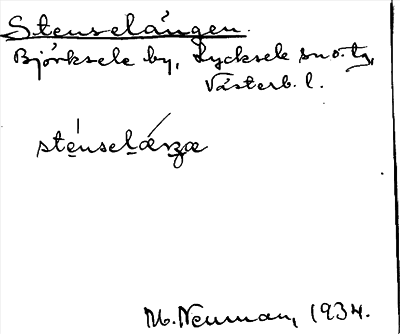 Stenselången.
Björksele by, Lycksele sn o. tg,
Västerb. l.
M. Neuman, 1934.